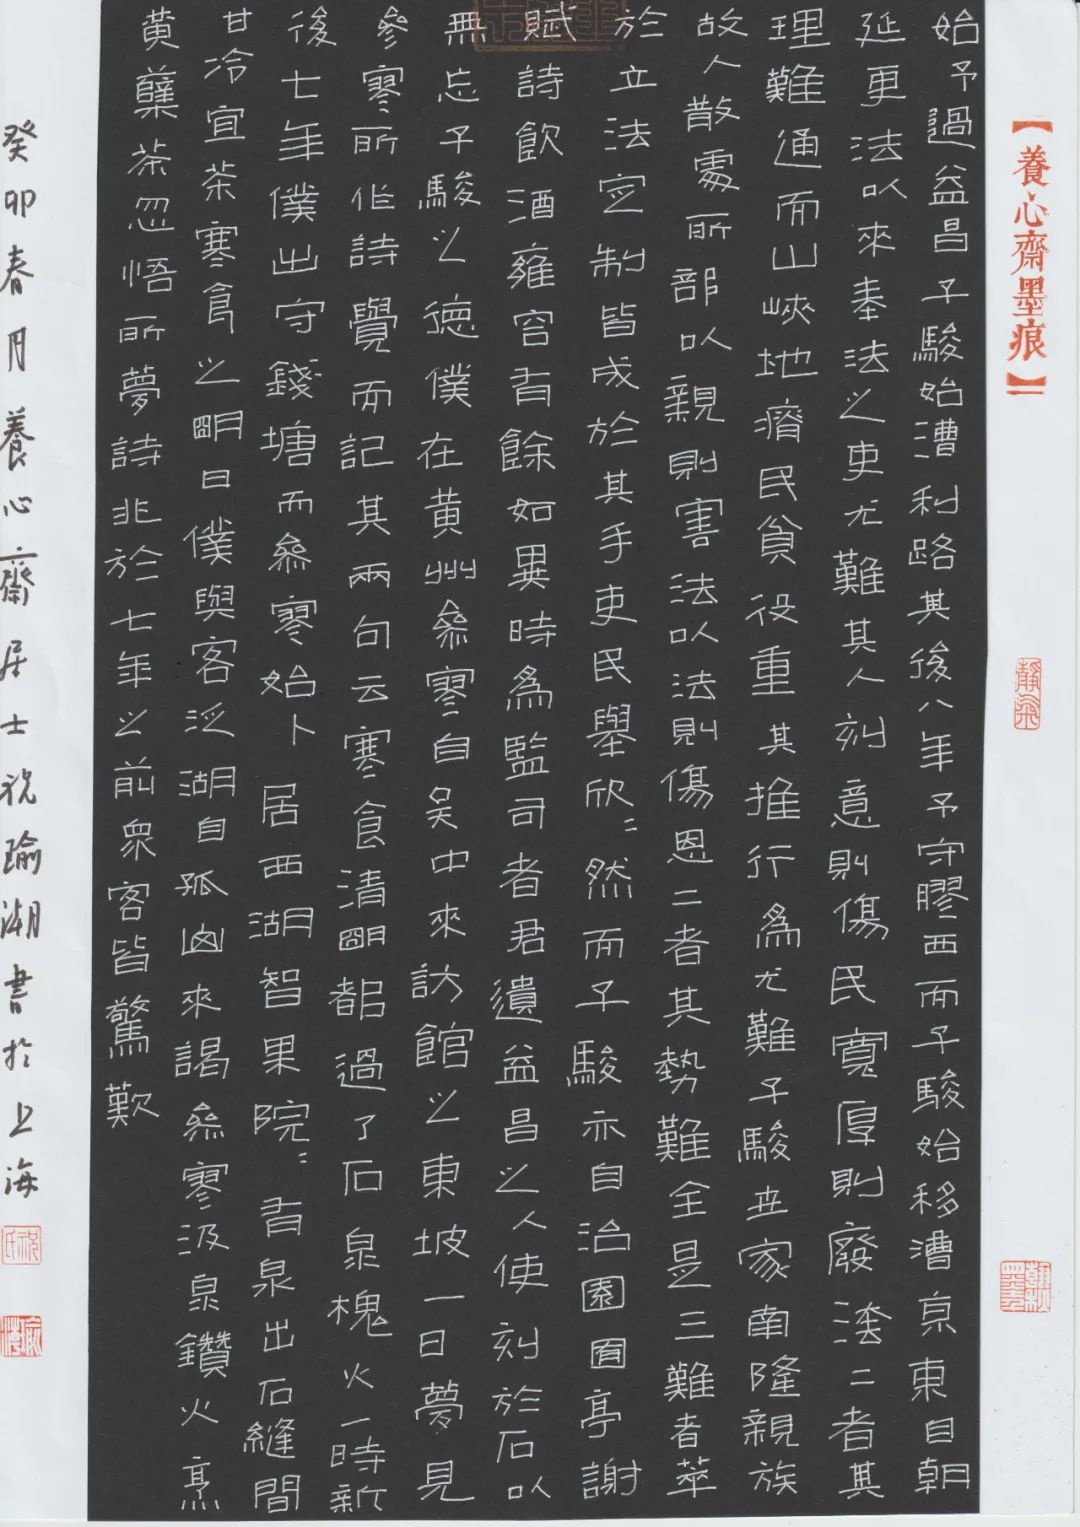 【養心齋墨痕】
始予過益昌子駿始漕利路其後八年予守膠西而子駿始移漕京東自朝
延更法以來奉法之吏尤難其人刻意則傷民寬厚則廢法二者其
理難通而山峽地瘠民貧役重其推行為尤難子駿世家南隆親族
故人散處所部以親則害法以法則傷恩二者其勢難全是三難者萃
於立法定制皆成於其手吏民舉欣〻然而子駿亦自治園囿亭謝
賦詩飲酒雍容有餘如異時為監司者君遺益昌之人使刻於石以
無忘子駿之德僕在黃州參寥自吳中來訪館之東坡一日夢見
參寥所作詩覺而記其兩句云寒食清明都過了石泉槐火一時新
後七年僕出守錢塘而參寥始卜居西湖智果院〻有泉出石縫間
甘冷宜茶寒食之明日僕與客泛湖自孤山來謁參寥汲泉鑽火烹
黃蘗茶忽悟所夢詩兆於七年之前衆客皆驚歎
癸卯春月養心齋居士祝瑜湖書於上海